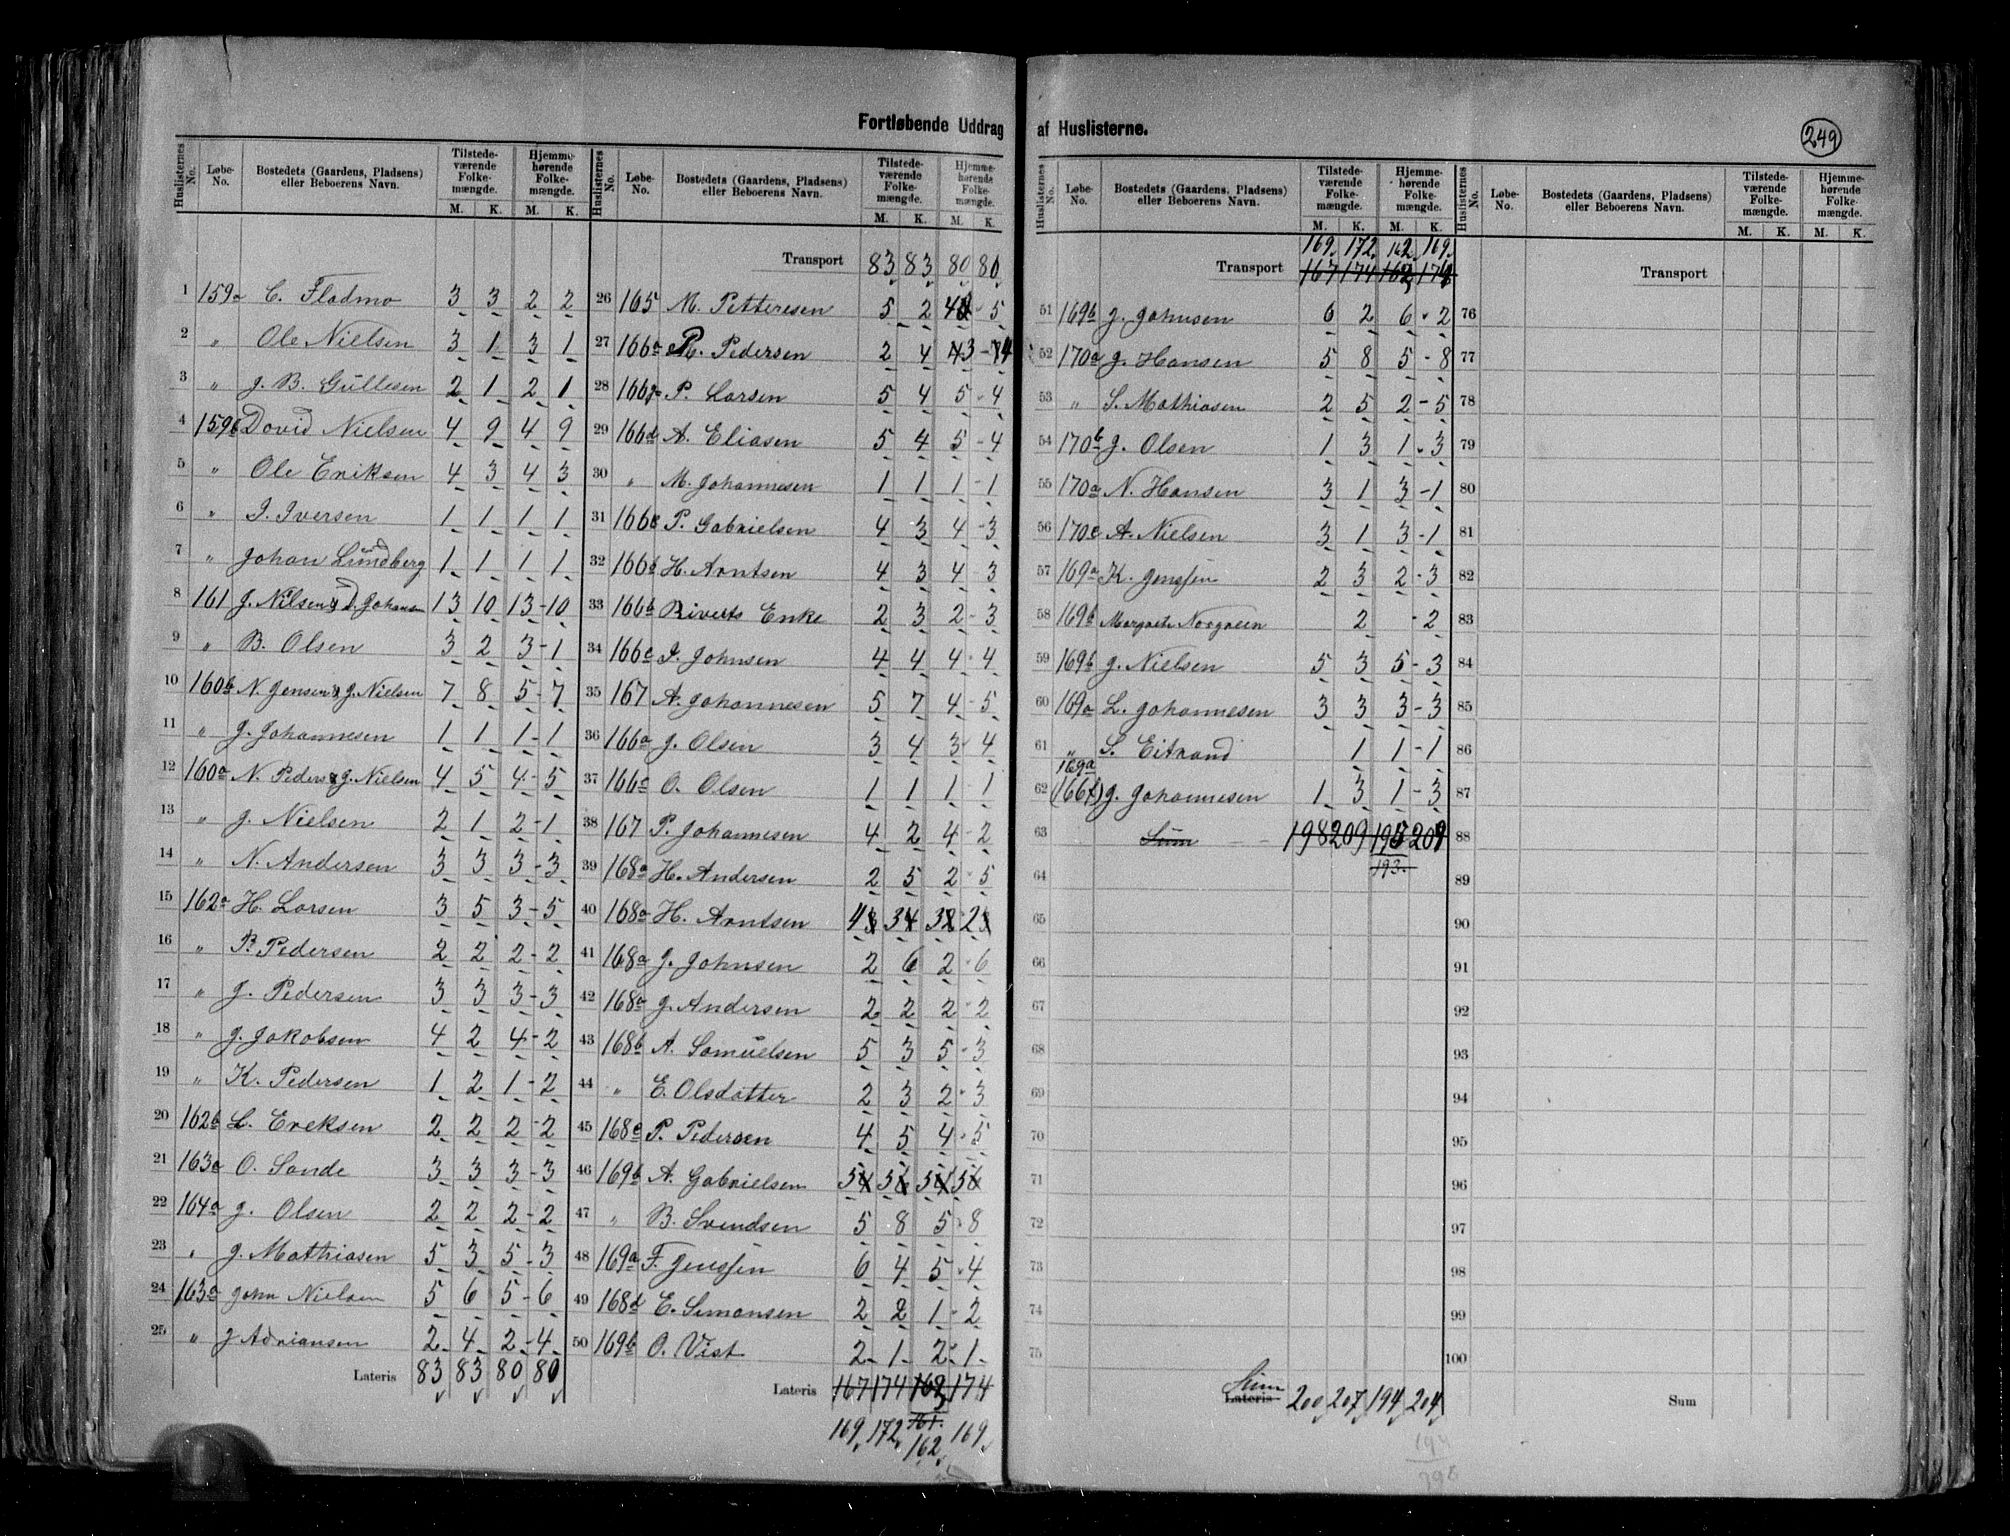 Fortløbende Uddrag af Huslisterne.
249
Huslisternes No. Løbe-No. Bostedets (Gaardens, Pladsens) eller Beboerens Navn. Tilstedeværende Folkemængde. M. K. Hjemmehørende Folkemængde. M. K.
1 159a C. Fladmo 3 3 2 2
2 " Ole Nielsen 3 1 3 1
3 " J. B. Gullesen 2 1 2 1
4 159b David Nielsen 4 9 4 9
5 " Ole Eriksen 4 3 4 3
6 " I. Iversen 1 1 1 1
7 " Johan Lundberg 1 1 1 1
8 161 J. Nilsen & D. Johansen 13 10 13-10
9 " B. Olsen 3 2 3-1
10 160b N. Jensen & J. Nielsen 7 8 5-7
11 " J. Johannesen 1 1 1-1
12 160a N. Peders & J. Nielsen 4 5 4-5
13 " J. Nielsen 2 1 2-1
14 " N. Andersen 3 3 3-3
15 162a H. Larsen 3 5 3-5
16 " P. Pedersen 2 2 2-2
17 " J. Pedersen 3 3 3-3
18 " J. Jakobsen 4 2 4-2
19 " K. Pedersen 1 2 1-2
20 162b L. Ereksen 2 2 2-2
21 163a O. Sande 3 3 3-3
22 164a J. Olsen 2 2 2-2
23 " J. Mathiasen 5 3 5-3
24 163a John Nielsen 5 6 5-6
25 " J Adriansen 2 4 2-4
Lateris 83 83 80 80
Huslisternes No. Løbe-No. Bostedets (Gaardens, Pladsens) eller Beboerens Navn. Tilstedeværende Folkemængde. M. K. Hjemmehørende Folkemængde. M. K.
Transport 83 83 80 80
26 165 M. Petteresen 5 2 4-5
27 166a P. Pedersen 2 4 3-4
28 166 P. Larsen 5 4 5-4
29 166d A. Eliasen 5 4 5-4
30 " M. Johannesen 1 1 1-1
31 166 P. Gabrielsen 4 3 4-3
32 166b H. Arntsen 4 3 4-3
33 166b Riverts Enke 2 3 2-3
34 166c I. Johnsen 4 4 4-4
35 167 A. Johannesen 5 7 4-5
36 166a J. Olsen 3 4 3-4
37 166c O. Olsen 1 1 1-1
38 167 P. Johannesen 4 2 4-2
39 168a H. Andersen 2 5 2-5
40 168a H. Arntsen 4 3 3 2
41 168a J. Johnsen 2 6 2-6
42 168a J. Andersen 2 2 2-2
43 168b A. Samuelsen 5 3 5-3
44 " E. Olsdatter 2 3 2-3
45 168c P. Pedersen 4 5 4-5
46 169b A. Gabrielsen 5 5 5 5
47 " B. Svendsen 5 8 5-8
48 169a F. Jenssen 6 4 5-4
49 168d E. Simonsen 2 2 1-2
50 169b O. Vist 2 1 2-1
Lateris 167 174 162 174
3
161.
169 172 162 169
Huslisternes No. Løbe-No. Bostedets (Gaardens, Pladsens) eller Beboerens Navn. Tilstedeværende Folkemængde. M. K. Hjemmehørende Folkemængde. M. K.
169 172 162 169
Transport 167 174 162 174
51 169b J. Johnsen 6 2 6-2
52 170a J. Hansen 5 8 5-8
53 " S. Mathiasen 2 5 2-5
54 170b J. Olsen 1 3 1-3
55 170a N. Hansen 3 1 3-1
56 170c A. Nielsen 3 1 3-1
57 169a K. Jenssen 2 3 2-3
58 169b Margrete Norgreen 2 -2
59 169b J. Nielsen 5 3 5-3
60 169a L. Johannesen 3 3 3-3
61 " S. Eitrand 1 1-1
169a
62 (166f) J. Johannesen 1 3 1-3
63 Sum 198 209 195 209
193.
64
65
66
67
68
69
70
71
72
73
74
75
Sum
Lateris 200 207 194 204
194
398
Huslisternes No. Løbe-No. Bostedets (Gaardens, Pladsens) eller Beboerens Navn. Tilstedeværende Folkemængde. M. K. Hjemmehørende Folkemængde. M. K.
Transport
76
77
78
79
80
81
82
83
84
85
86
87
88
89
90
91
92
93
94
95
96
97
98
99
100
Sum